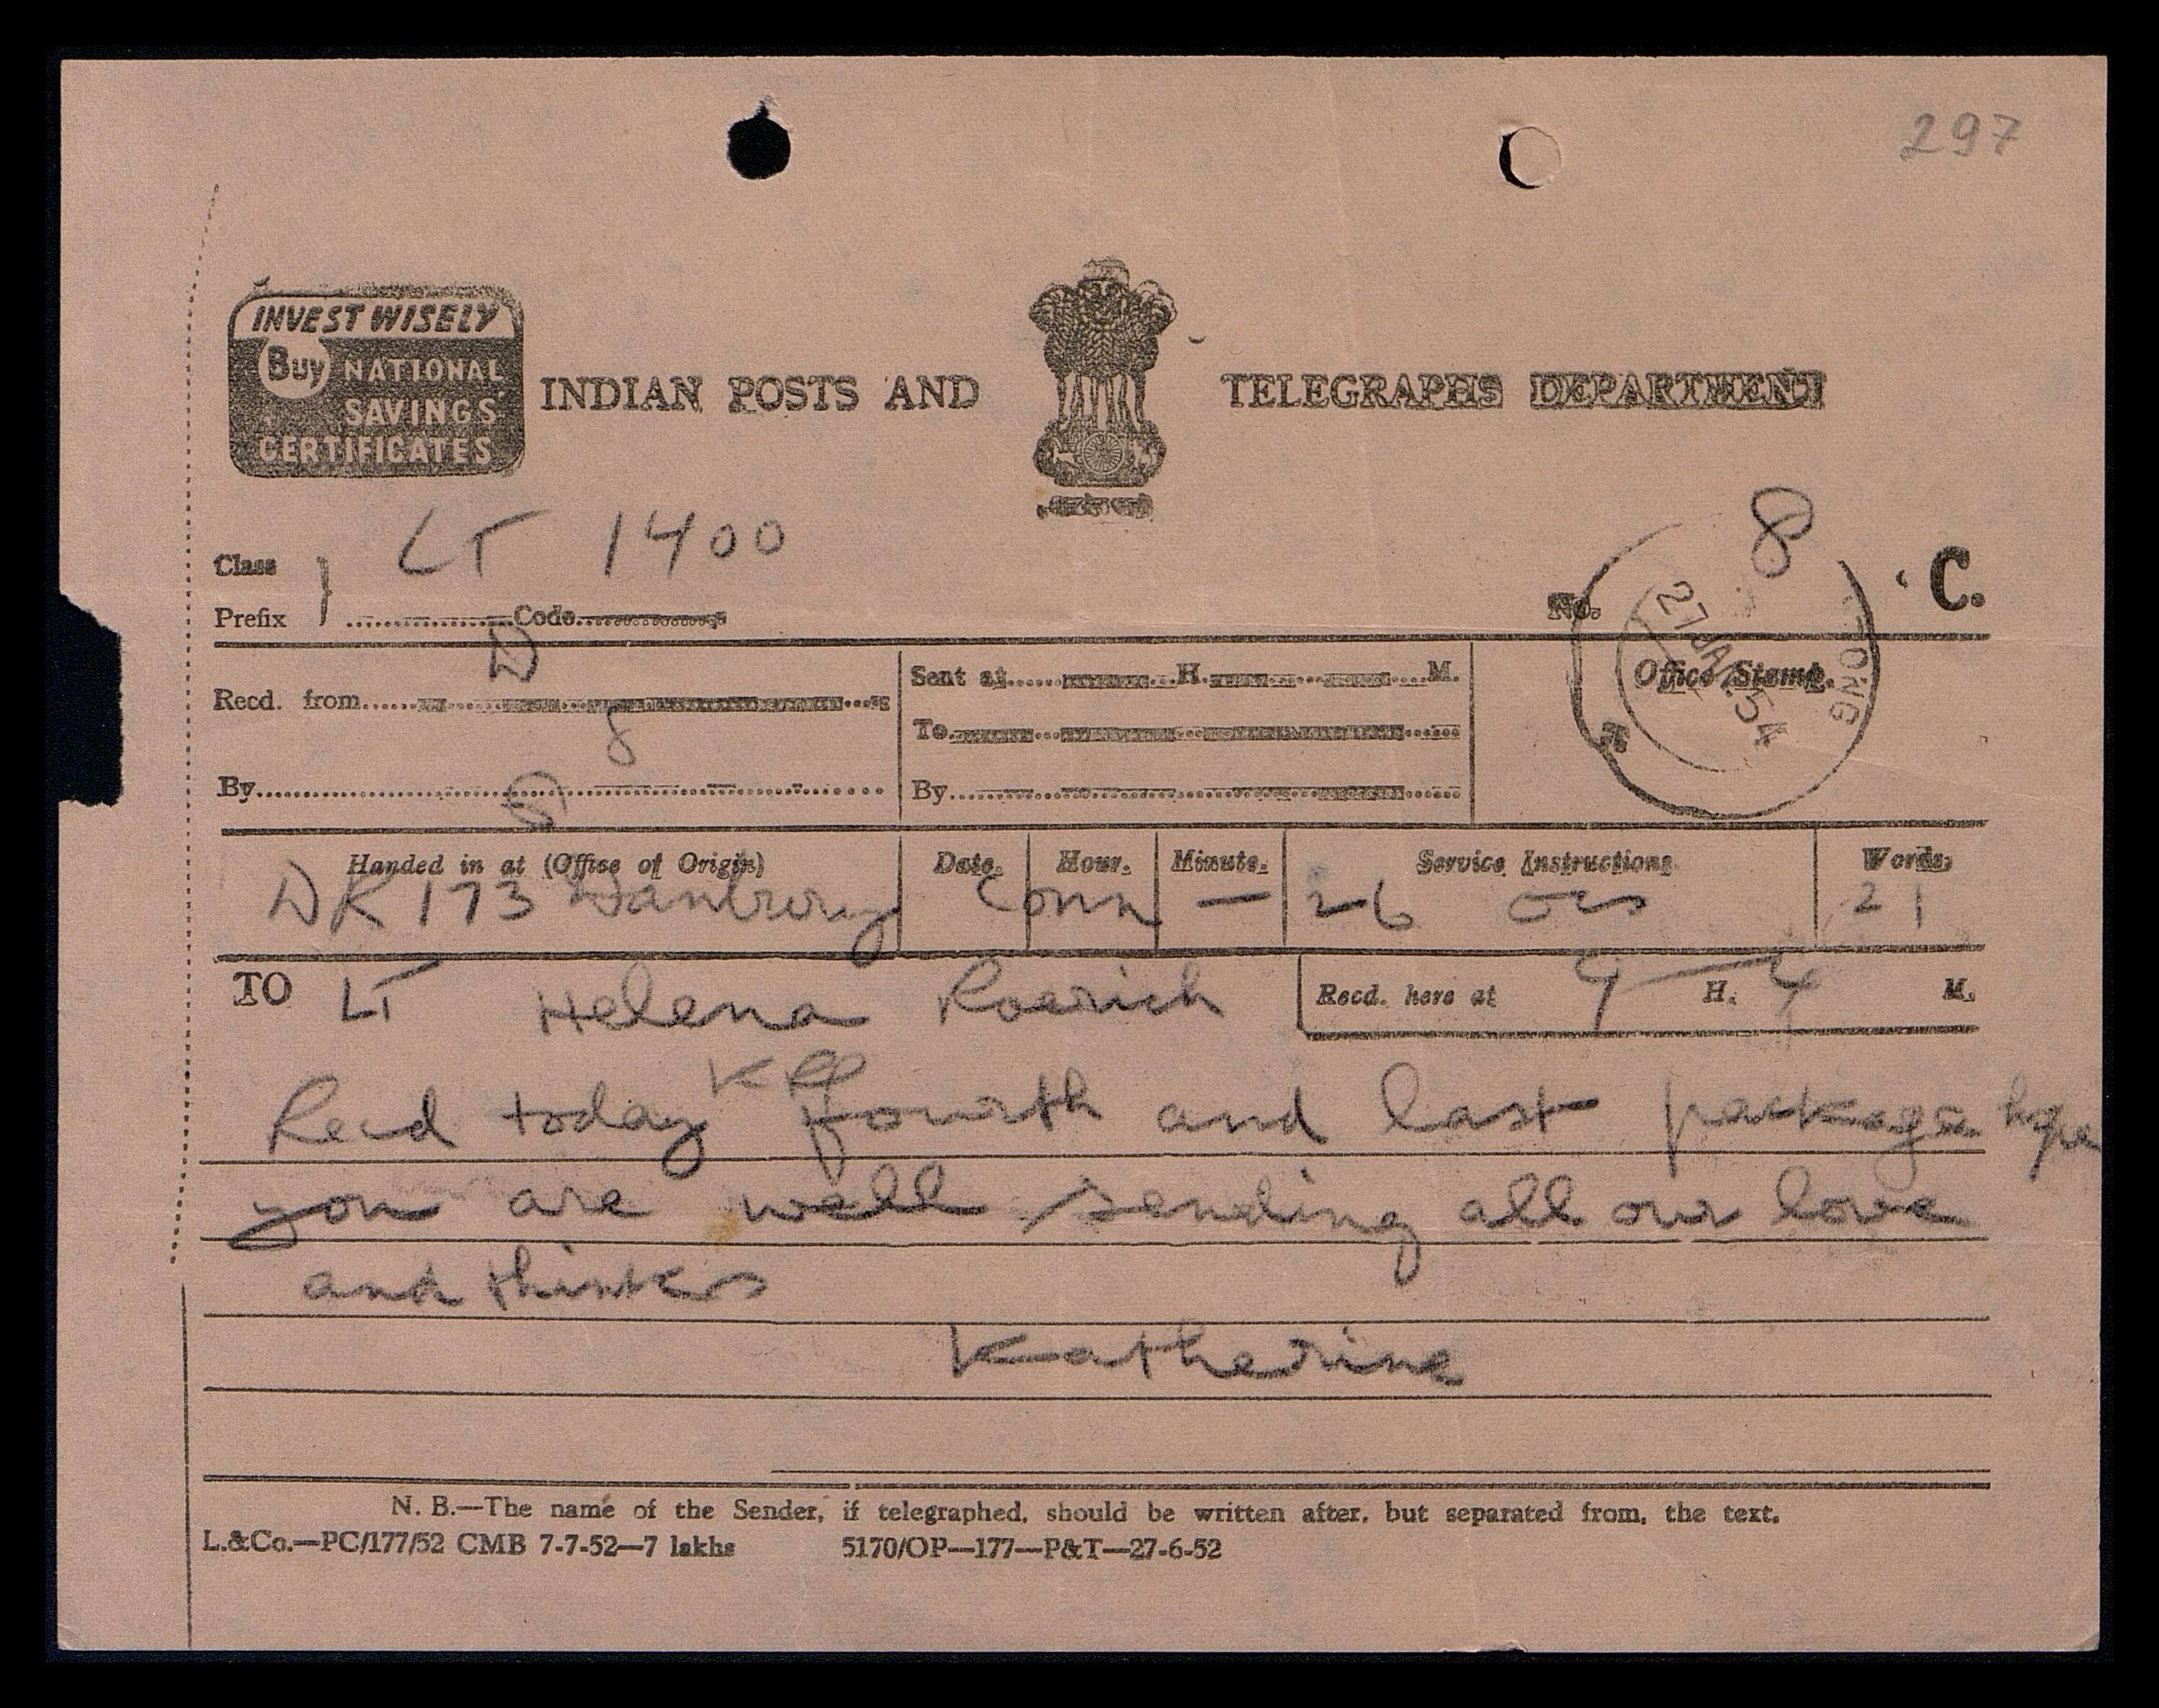 297
INVEST WISELY
Buy NATIONAL
SAVINGS
CERTIFICATES
INDIAN POSTS AND TELEGRAPHS DEPARTMENT
LT 1400
8
Class
Prefix Code
No. C.
27 JAN 54
Office Stamp.
D
Recd. from
Sent at H. M.
To
8
By
By
Handed in at (Office of Origin) Date. Hour. Minute. Service Instructions Words.
DK 173 Danbury Conn — 26 21
TO LT Helena Roerich
Recd. here at H. M.
Recd today fourth and last package hope
you are well sending all our love
and thinkers
Katherine
N. B.—The name of the Sender, if telegraphed, should be written after, but separated from, the text.
L.&Co.—PC/177/52 CMB 7-7-52—7 lakhs 5170/OP—177—P&T—27-6-52